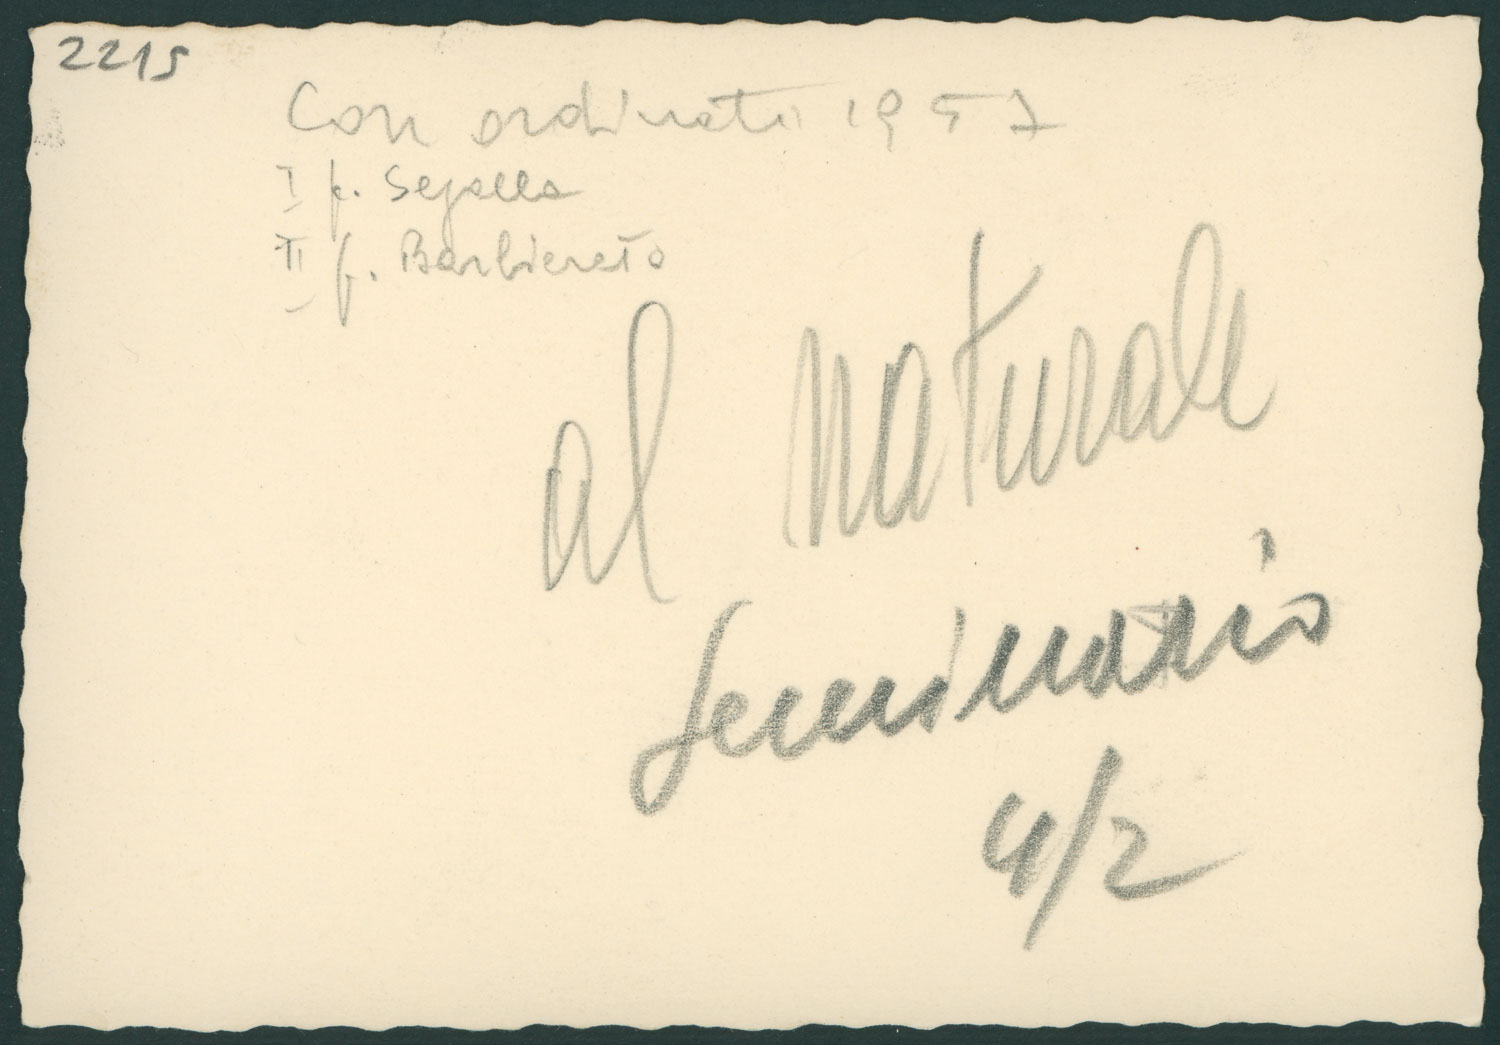 2215
Con ordinati 1957
I f. Segalla
II f. Barbiereto
al naturale
Seminario
4/2